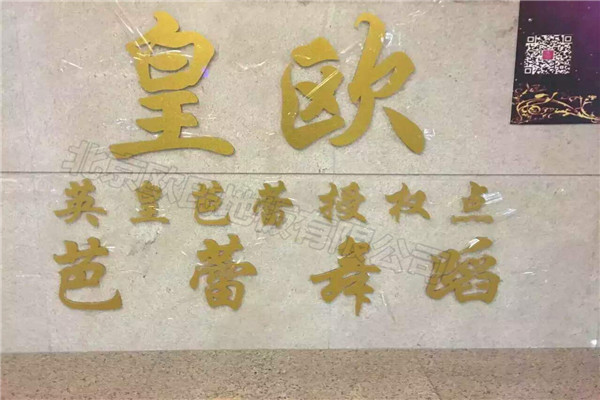 皇欧
英皇芭蕾授权点
芭蕾舞蹈
北京欧地板有限公司